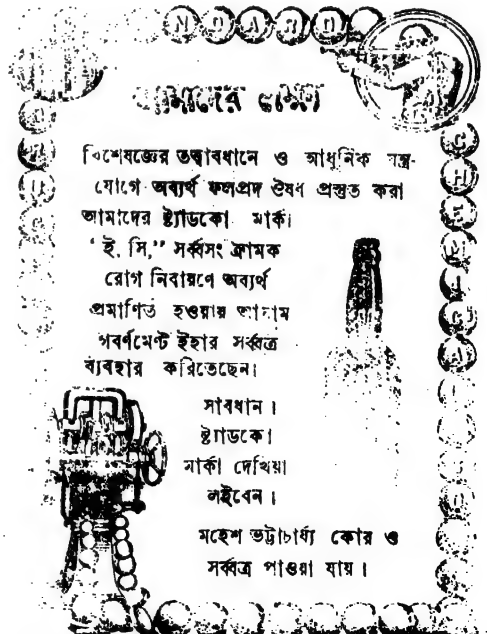 আমাদের লক্ষ্য
বিশেষজ্ঞের তত্ত্বাবধানে ও আধুনিক যন্ত্র-
যোগে অব্যর্থ ফলপ্রদ ঔষধ প্রস্তুত করা
আমাদের ষ্ট্যাডকো মার্ক।
"ই. সি," সর্ব্বসংক্রামক
রোগ নিবারণে অব্যর্থ
প্রমাণিত হওয়ায় আসাম
গবর্ণমেণ্ট ইহার সর্ব্বত্র
ব্যবহার করিতেছেন।
সাবধান।
ষ্ট্যাডকো।
মার্কা দেখিয়া
লইবেন।
মহেশ ভট্টাচার্য্য কোর ও
সর্ব্বত্র পাওয়া যায়।